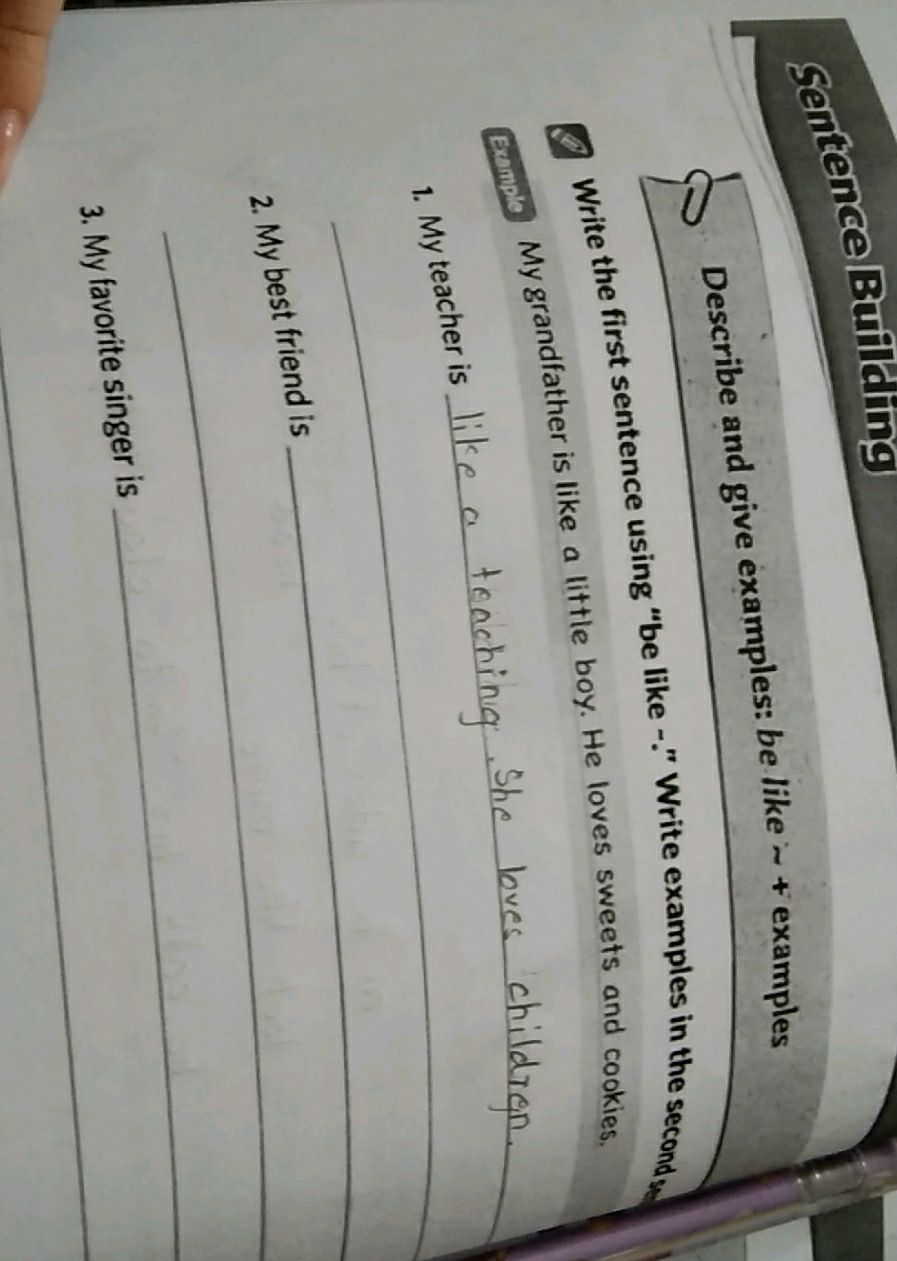 Sentence Building
Describe and give examples: be like ~ + examples
Write the first sentence using "be like ~." Write examples in the second
Example My grandfather is like a little boy. He loves sweets and cookies.
1. My teacher is like a teaching. She loves children.
2. My best friend is
3. My favorite singer is